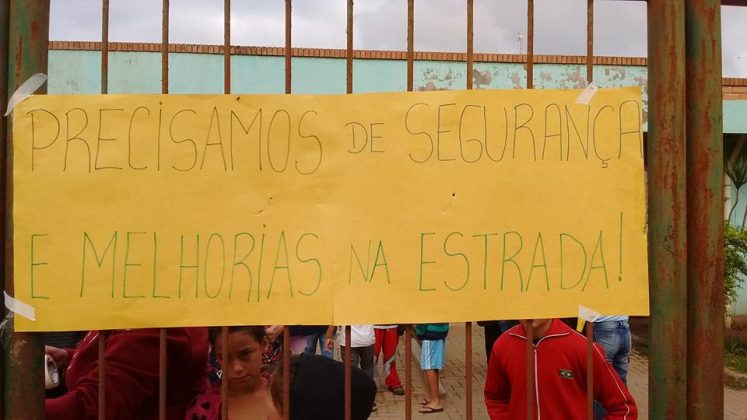 PRECISAMOS DE SEGURANÇA
E MELHORIAS NA ESTRADA!